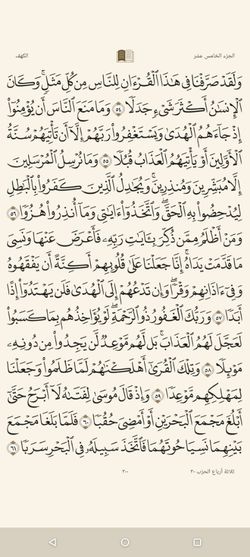 الكهف
الجزء الخامس عشر
وَلَقَدْ صَرَّفْنَا فِي هَٰذَا ٱلْقُرْءَانِ لِلنَّاسِ مِن كُلِّ مَثَلٍۚ وَكَانَ
ٱلْإِنسَٰنُ أَكْثَرَ شَىْءٍ جَدَلًا ٥٤ وَمَا مَنَعَ ٱلنَّاسَ أَن يُؤْمِنُوٓا۟
إِذْ جَآءَهُمُ ٱلْهُدَىٰ وَيَسْتَغْفِرُوا۟ رَبَّهُمْ إِلَّآ أَن تَأْتِيَهُمْ سُنَّةُ
ٱلْأَوَّلِينَ أَوْ يَأْتِيَهُمُ ٱلْعَذَابُ قُبُلًا ٥٥ وَمَا نُرْسِلُ ٱلْمُرْسَلِينَ
إِلَّا مُبَشِّرِينَ وَمُنذِرِينَۚ وَيُجَٰدِلُ ٱلَّذِينَ كَفَرُوا۟ بِٱلْبَٰطِلِ
لِيُدْحِضُوا۟ بِهِ ٱلْحَقَّۖ وَٱتَّخَذُوٓا۟ ءَايَٰتِى وَمَآ أُنذِرُوا۟ هُزُوًا ٥٦
وَمَنْ أَظْلَمُ مِمَّن ذُكِّرَ بِـَٔايَٰتِ رَبِّهِۦ فَأَعْرَضَ عَنْهَا وَنَسِىَ
مَا قَدَّمَتْ يَدَاهُۚ إِنَّا جَعَلْنَا عَلَىٰ قُلُوبِهِمْ أَكِنَّةً أَن يَفْقَهُوهُ
وَفِىٓ ءَاذَانِهِمْ وَقْرًاۖ وَإِن تَدْعُهُمْ إِلَى ٱلْهُدَىٰ فَلَن يَهْتَدُوٓا۟ إِذًا
أَبَدًا ٥٧ وَرَبُّكَ ٱلْغَفُورُ ذُو ٱلرَّحْمَةِۖ لَوْ يُؤَاخِذُهُم بِمَا كَسَبُوا۟
لَعَجَّلَ لَهُمُ ٱلْعَذَابَۚ بَل لَّهُم مَّوْعِدٌ لَّن يَجِدُوا۟ مِن دُونِهِۦ
مَوْئِلًا ٥٨ وَتِلْكَ ٱلْقُرَىٰٓ أَهْلَكْنَٰهُمْ لَمَّا ظَلَمُوا۟ وَجَعَلْنَا
لِمَهْلِكِهِم مَّوْعِدًا ٥٩ وَإِذْ قَالَ مُوسَىٰ لِفَتَىٰهُ لَآ أَبْرَحُ حَتَّىٰٓ
أَبْلُغَ مَجْمَعَ ٱلْبَحْرَيْنِ أَوْ أَمْضِىَ حُقُبًا ٦٠ فَلَمَّا بَلَغَا مَجْمَعَ
بَيْنِهِمَا نَسِيَا حُوتَهُمَا فَٱتَّخَذَ سَبِيلَهُۥ فِى ٱلْبَحْرِ سَرَبًا ٦١
٣٠٠
ثلاثة أرباع الحزب ٣٠